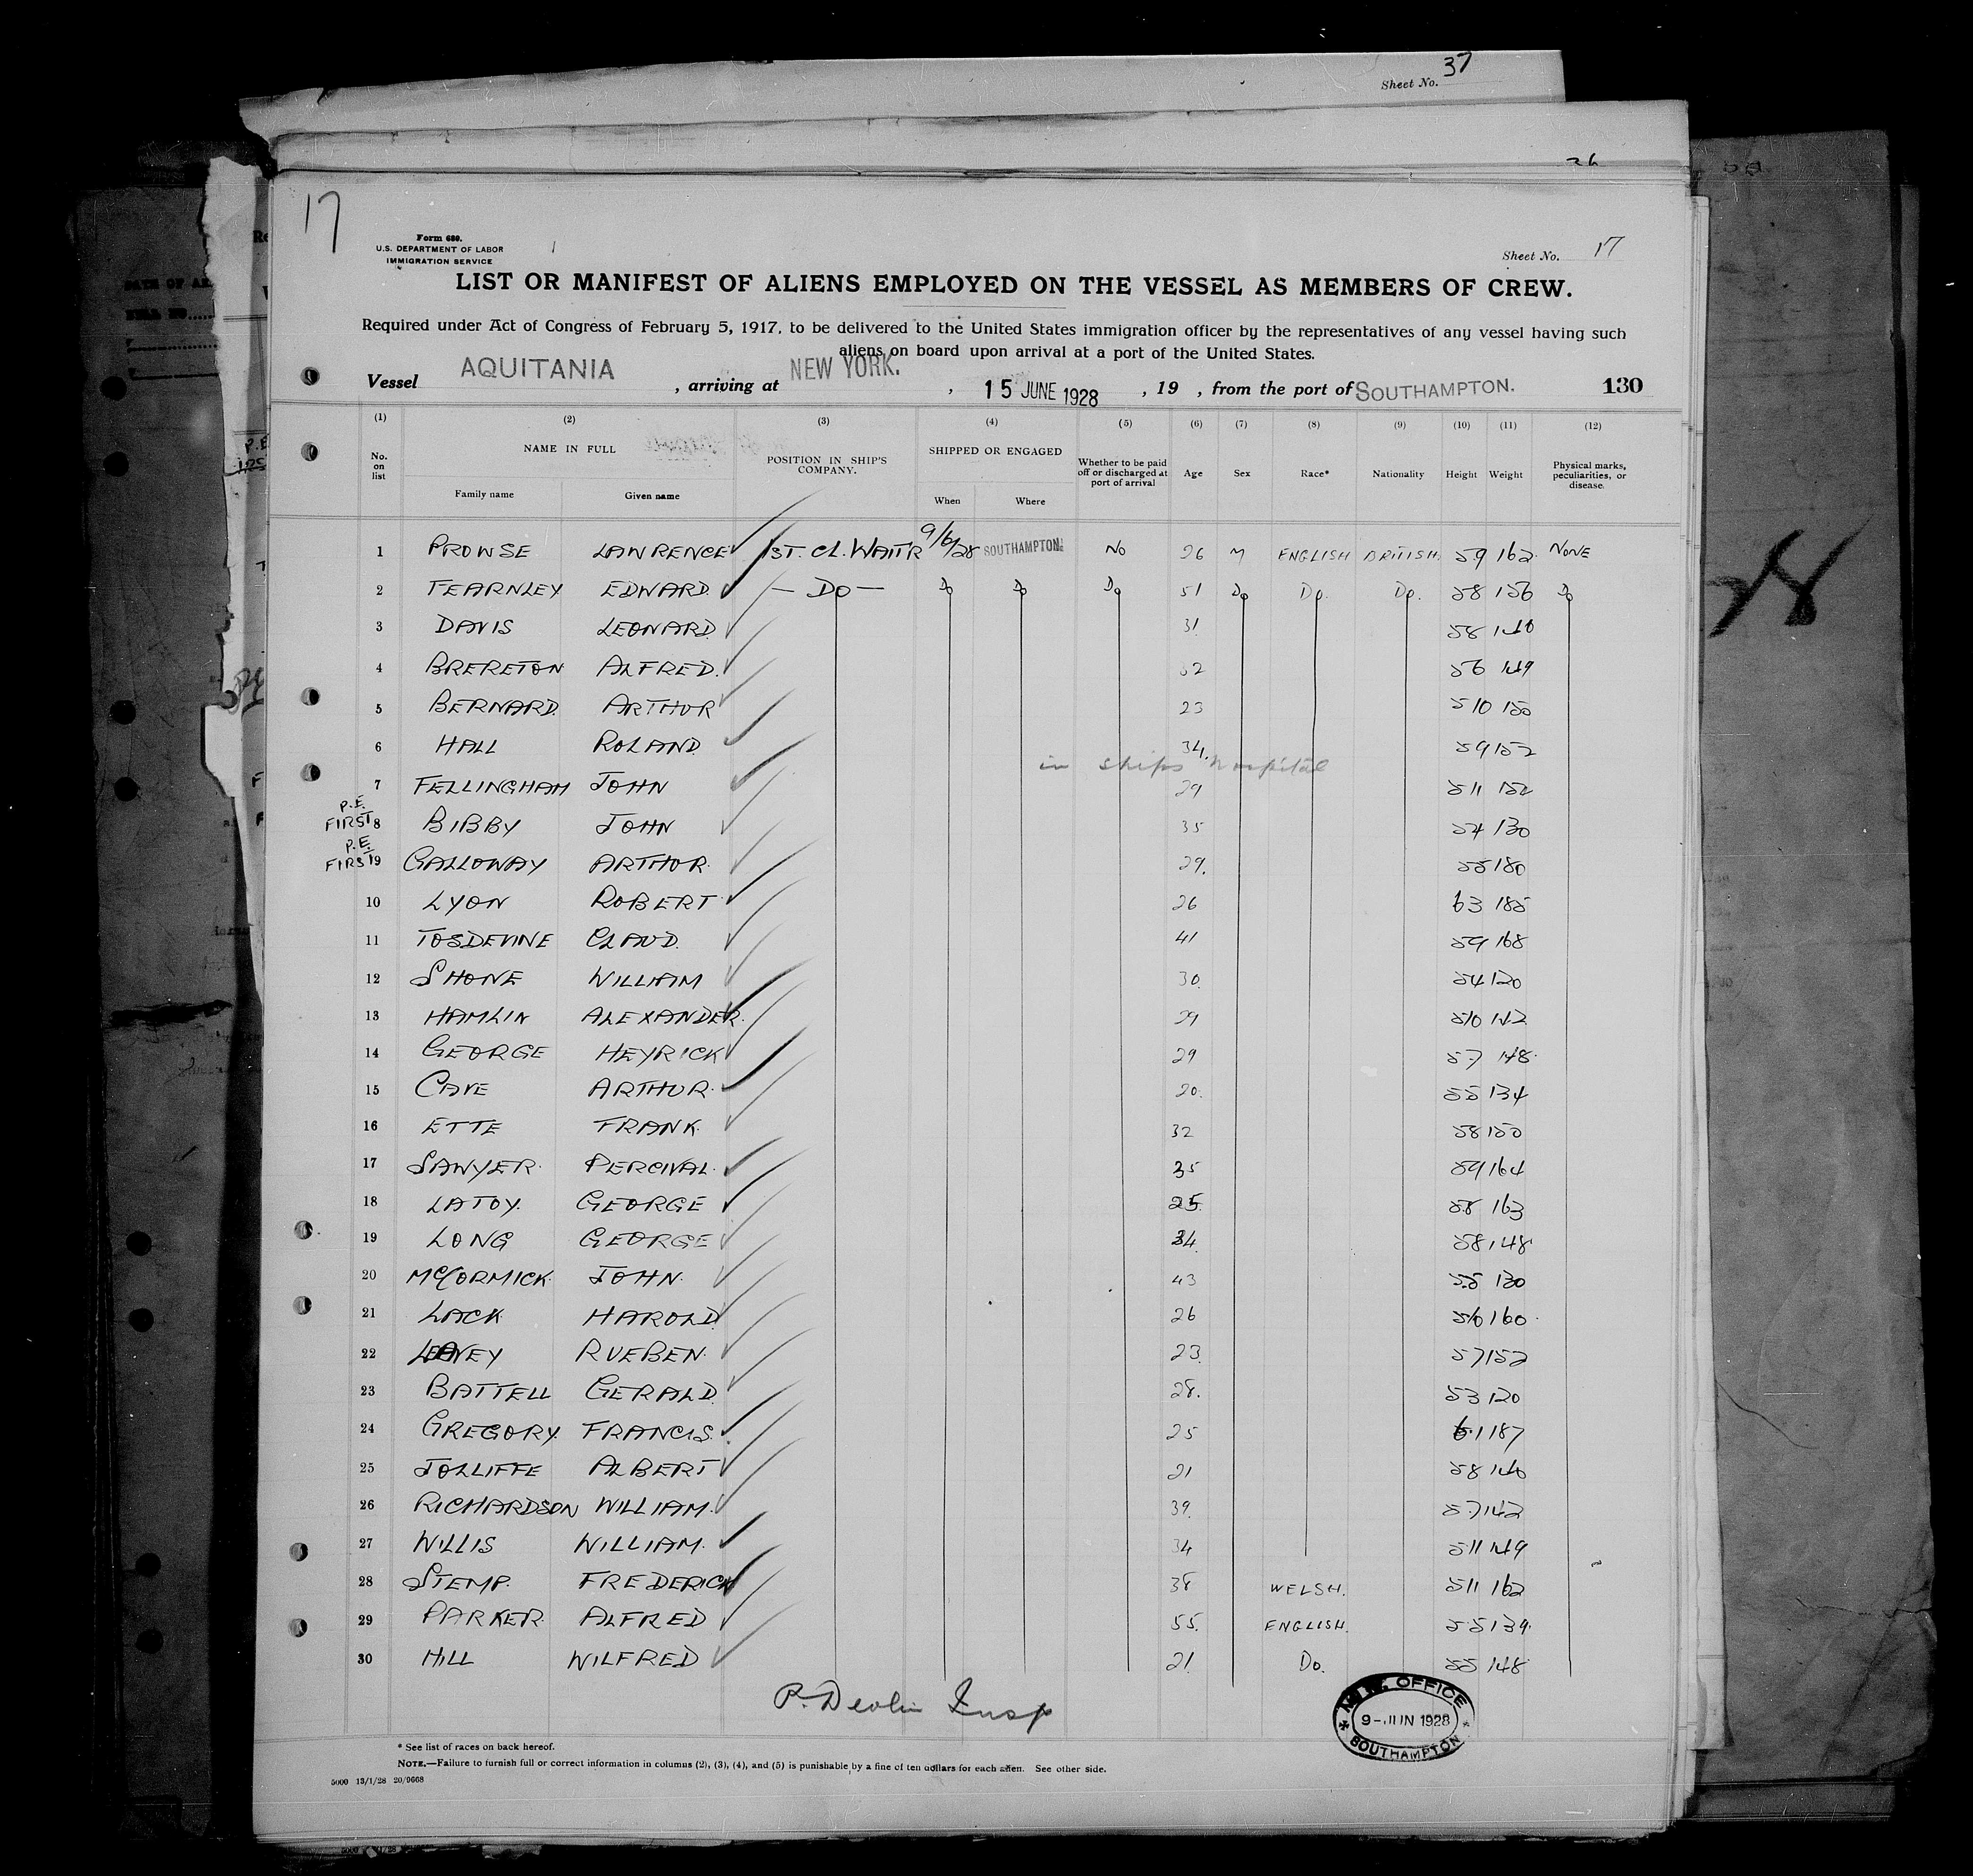 Sheet No. 37
26
17
Form 680.
U.S. DEPARTMENT OF LABOR
IMMIGRATION SERVICE
Sheet No. 17
LIST OR MANIFEST OF ALIENS EMPLOYED ON THE VESSEL AS MEMBERS OF CREW.
Required under Act of Congress of February 5, 1917, to be delivered to the United States immigration officer by the representatives of any vessel having such
aliens on board upon arrival at a port of the United States.
Vessel AQUITANIA, arriving at NEW YORK., 15 JUNE 1928, 19 , from the port of SOUTHAMPTON. 130
(1) (2) (3) (4) (5) (6) (7) (8) (9) (10) (11) (12)
No. on list NAME IN FULL Family name Given name POSITION IN SHIP'S COMPANY. SHIPPED OR ENGAGED When Where Whether to be paid off or discharged at port of arrival Age Sex Race* Nationality Height Weight Physical marks, peculiarities, or disease.
1 PROWSE LAWRENCE 1ST. CL. WAITR 9/6/28 SOUTHAMPTON. No 26 M ENGLISH BRITISH 59 162 NONE
2 FEARNLEY EDWARD. — Do — Do Do Do 51 Do Do. Do. 58 156 Do
3 DAVIS LEONARD 31 58 140
4 BRERETON ALFRED. 32 56 149
5 BERNARD. ARTHUR 23 510 150
6 HALL ROLAND 34. 59 152
in ships hospital
7 FELLINGHAM JOHN 29 511 152
P.E. FIRST 8 BIBBY JOHN 35 54 130
P.E. FIRST 9 GALLOWAY ARTHUR. 29. 55 180
10 LYON ROBERT 26 63 185
11 TOSDEVINE CLAUD. 41 59 168
12 SHONE WILLIAM 30. 54 120
13 HAMLIN ALEXANDER. 29 510 142
14 GEORGE HEYRICK 29 57 148.
15 CAVE ARTHUR. 20. 55 134
16 ETTE FRANK. 32 58 150
17 SAWYER. PERCIVAL. 35 59 164
18 LATOY. GEORGE 25. 58 163
19 LONG GEORGE 34. 58 148
20 McCORMICK. JOHN. 43 55 130
21 LACK HAROLD 26 510 160
22 LEAVEY RUEBEN. 23. 57 152
23 BATTELL GERALD. 28. 53 120
24 GREGORY. FRANCIS. 25 6.1 187
25 JOLLIFFE ALBERT 21 58 140
26 RICHARDSON WILLIAM. 39. 57 142
27 WILLIS WILLIAM. 34 511 149
28 STEMP. FREDERICK 38 WELSH. 511 162
29 PARKER. ALFRED 55. ENGLISH. 55 139.
30 HILL WILFRED 21. Do. 55 148
P. Devlin Insp
OFFICE
9-JUN 1928
SOUTHAMPTON
* See list of races on back hereof.
NOTE.—Failure to furnish full or correct information in columns (2), (3), (4), and (5) is punishable by a fine of ten dollars for each alien. See other side.
5000 13/1/28 20/9668